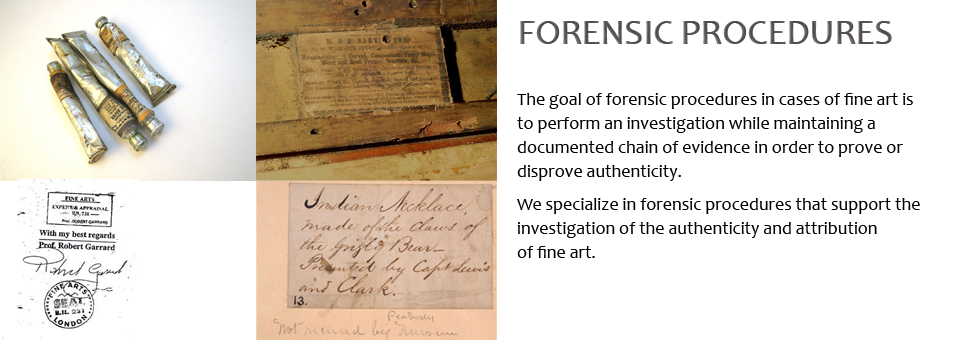 FORENSIC PROCEDURES
The goal of forensic procedures in cases of fine art is
to perform an investigation while maintaining a
documented chain of evidence in order to prove or
disprove authenticity.
We specialize in forensic procedures that support the
investigation of the authenticity and attribution
of fine art.
FINE ARTS
EXPERT & APPRAISAL
Prof. ROBERT GARRARD
With my best regards
Prof. Robert Garrard
Robert Garrard
FINE ARTS
SEAL
R.H. 231
LONDON
Indian Necklace,
made of the claws of
the Grizly Bear—
Presented by Capt Lewis
and Clark.
13.
Peabody
Not received by Museum